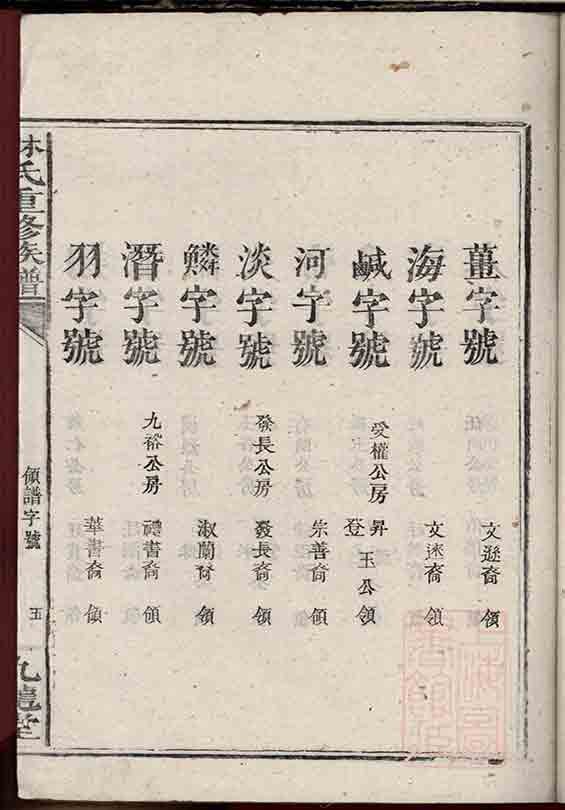 薑字號 文遜裔 領
海字號 文迷裔 領
鹹字號 受權公房 昇登 玉公領
河字號 朱善裔 領
淡字號 發長公房 發長裔 領
鱗字號 淑蘭裔 領
潛字號 九裕公房 禮書裔 領
羽字號 華書裔 領
林氏重修族譜
領譜字號
五
九龍堂